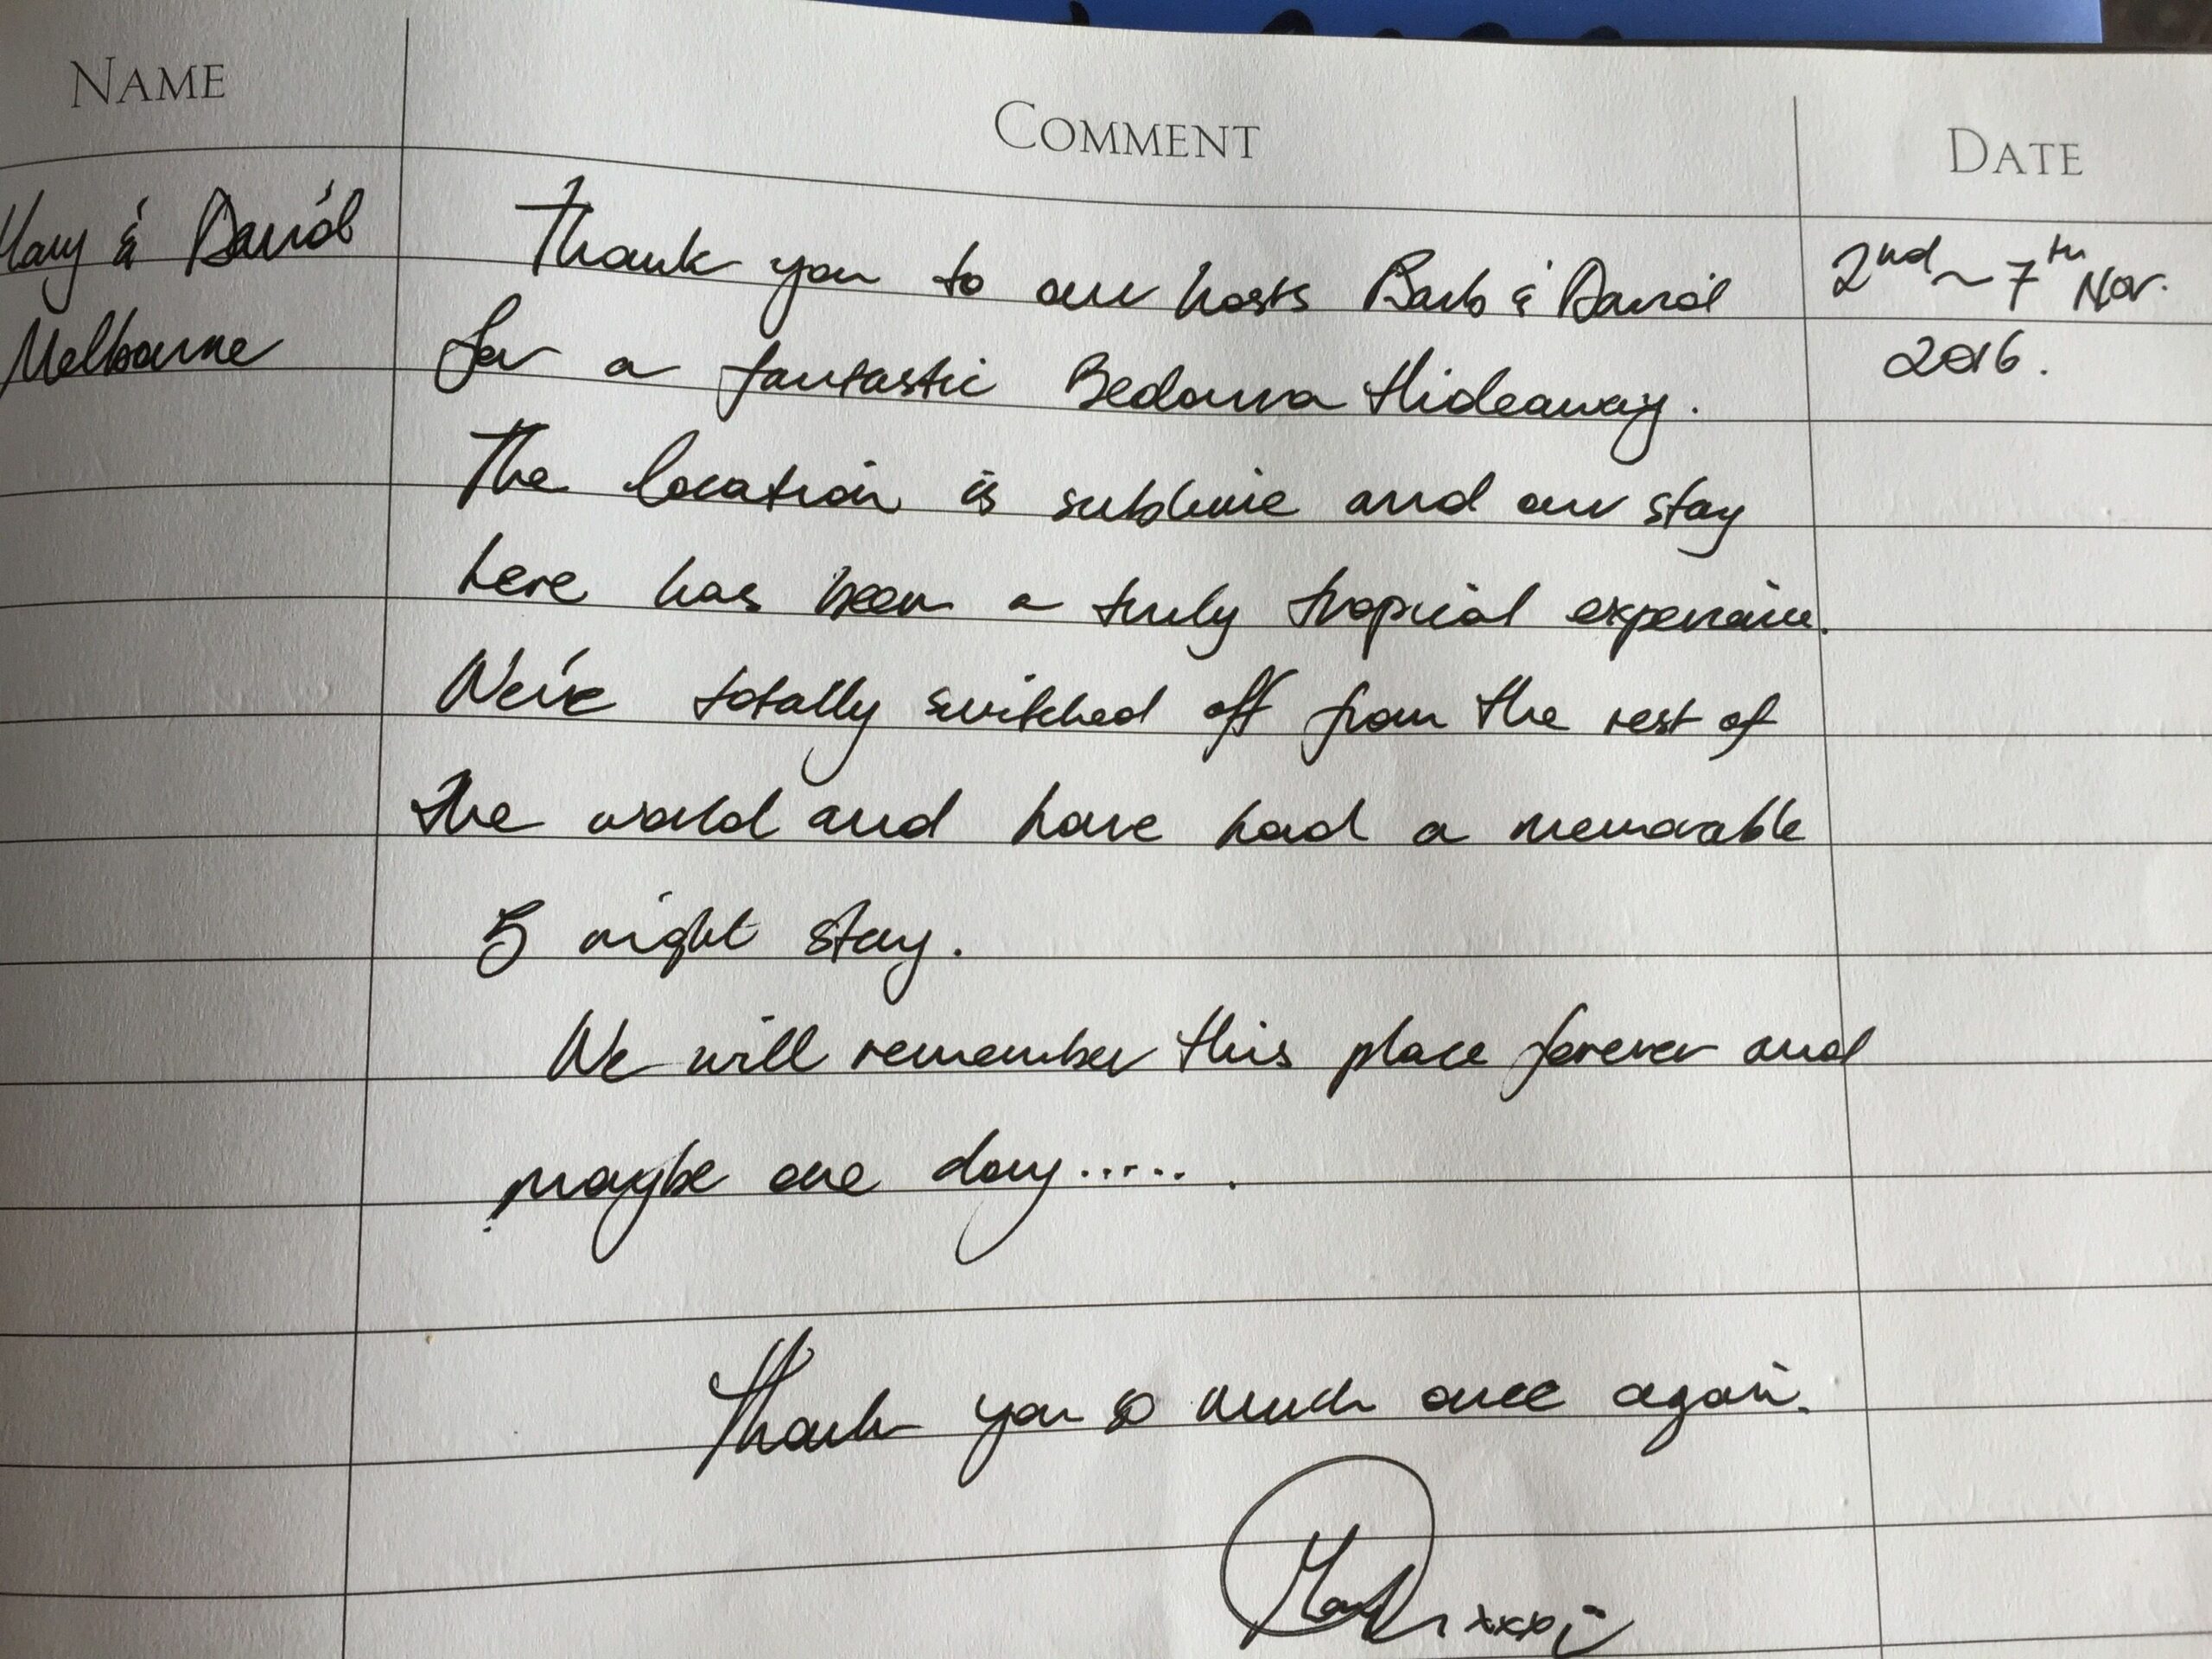 NAME COMMENT DATE
Mary & David Thank you to our hosts Barb & David 2nd ~ 7th Nov.
Melbourne for a fantastic Bedarra Hideaway. 2016.
The location is sublime and our stay
here has been a truly tropical experience.
We've totally switched off from the rest of
the world and have had a memorable
5 night stay.
We will remember this place forever and
maybe one day......
Thank you so much once again.
xxx